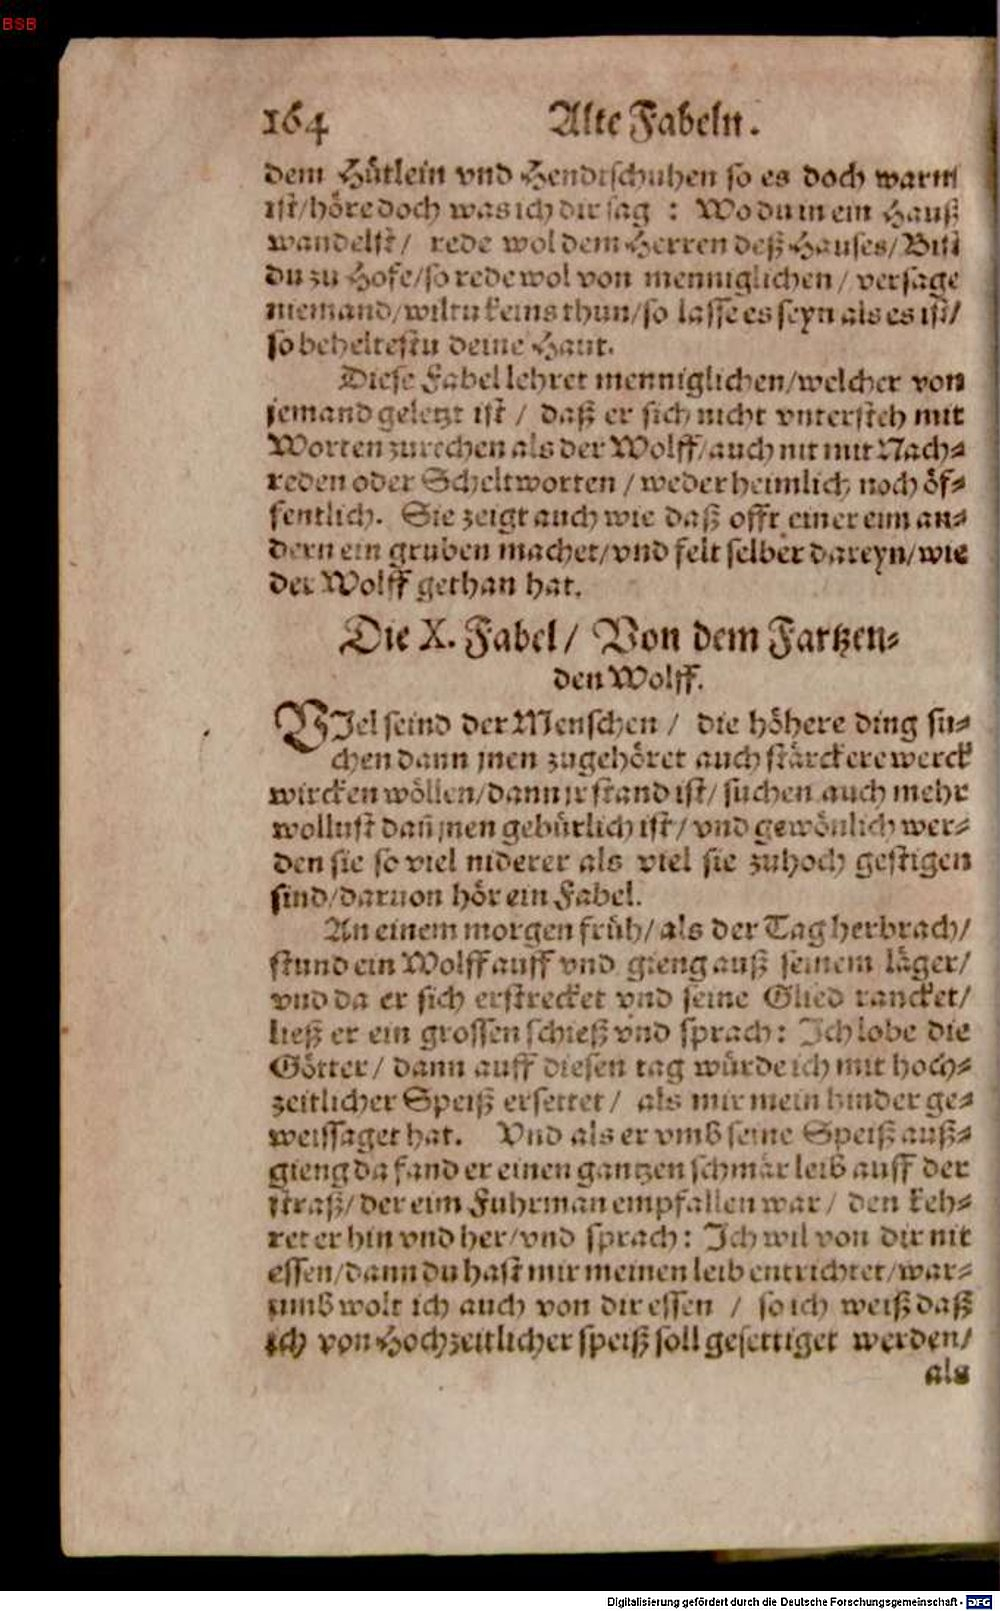 BSB
164 Alte Fabeln.
dem Hütlein vnd Hendtschuhen so es doch warm
ist/ höre doch was ich dir sag : Wo du in ein Hauß
wandelst/ rede wol dem Herren deß Hauses/ Bist
du zu Hofe/ so rede wol von menniglichen/ versage
niemand/ wiltu keins thun/ so lasse es seyn als es ist/
so beheltestu deine Haut.
Diese Fabel lehret menniglichen/ welcher von
jemand geletzt ist / daß er sich nicht vntersteh mit
Worten zurechen als der Wolff/ auch nit mit Nach⸗
reden oder Scheltworten / weder heimlich noch öf⸗
fentlich. Sie zeigt auch wie daß offt einer eim an⸗
dern ein gruben machet/ vnd felt selber dareyn/ wie
der Wolff gethan hat.
Die X. Fabel/ Von dem Fartzen⸗
den Wolff.
VIel seind der Menschen / die höhere ding su⸗
chen dann jnen zugehöret auch stärckere werck
wircken wöllen/ dann jr stand ist/ suchen auch mehr
wollust dañ jnen gebürlich ist/ vnd gewönlich wer⸗
den sie so viel niderer als viel sie zuhoch gestigen
sind/ daruon hör ein Fabel.
An einem morgen früh/ als der Tag herbrach/
stund ein Wolff auff vnd gieng auß seinem läger/
vnd da er sich erstrecket vnd seine Glied rancket/
ließ er ein grossen schieß vnd sprach: Ich lobe die
Götter/ dann auff diesen tag würde ich mit hoch⸗
zeitlicher Speiß ersettet/ als mir mein hinder ge⸗
weissaget hat. Vnd als er vmb seine Speiß auß⸗
gieng da fand er einen gantzen schmär leib auff der
straß/ der eim Fuhrman empfallen war/ den keh⸗
ret er hin vnd her/ vnd sprach: Ich wil von dir nit
essen/ dann du hast mir meinen leib entrichtet/ war⸗
umb wolt ich auch von dir essen / so ich weiß daß
ich von Hochzeitlicher speiß soll gesettiget werden/
als
Digitalisierung gefördert durch die Deutsche Forschungsgemeinschaft - DFG